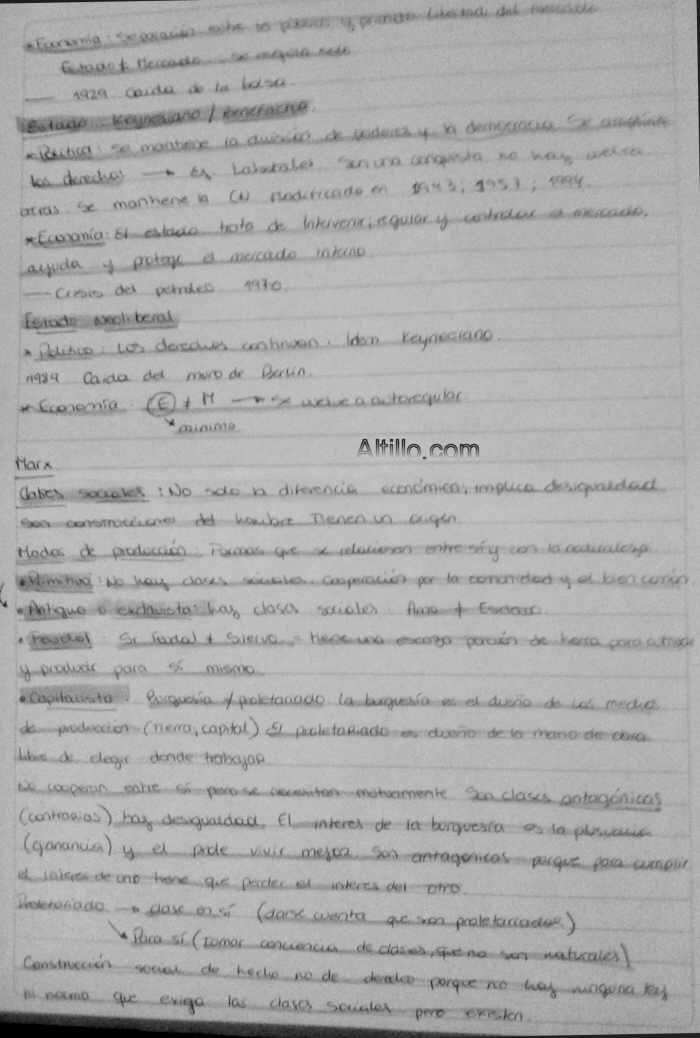 * Economía: Separación entre lo público y privado libertad del mercado
Estado ≠ Mercado se regula solo
— 1929 Caída de la bolsa.
Estado Keynesiano / Benefactor.
* Política: Se mantiene la división de poderes y la democracia Se amplían
los derechos → ej. Laborales son una conquista no hay vuelta
atras. Se mantiene la CN Modificado en 1943; 1957; 1994.
* Economía: El estado trata de Intervenir, regular y controlar el mercado,
ayuda y protege el mercado interno.
— Crisis del petroleo 1970.
Estado Neoliberal
* Política: Los derechos continuan. Idem Keynesiano.
1989 Caida del muro de Berlin.
* Economía. E + M → se vuelve a autoregular
minimo
Altillo.com
Marx
Clases sociales: No solo la diferencia económica, implica desigualdad
son construcciones del hombre Tienen un origen
Modos de producción. Formas que se relacionan entre sí y con la naturaleza.
• Primitivo: No hay clases sociales. Cooperación por la comunidad y el bien común.
• Antiguo o esclavista: hay clases sociales. Amo + Esclavo.
• Feudal Sr feudal + Siervo = tiene una escasa porción de tierra para
y producir para sí mismo.
• Capitalista Burguesía / proletariado la burguesía es el dueño de los medios
de producción (tierra, capital) El proletariado es dueño de la mano de obra
libre de elegir donde trabajar
No cooperan entre sí pero se necesitan mutuamente Son clases antagónicas
(contrarias) hay desigualdad. El interes de la burguesía es la plusvalía
(ganancia) y el prole vivir mejor. Son antagonicas porque para cumplir
el interes de uno tiene que perder el interes del otro.
Proletariado → clase en sí (darse cuenta que son proletariados)
↘ Para sí (tomar conciencia de clases, que no son naturales)
Construcción social de hecho no de derecho porque no hay ninguna ley
ni norma que exiga las clases sociales pero existen.